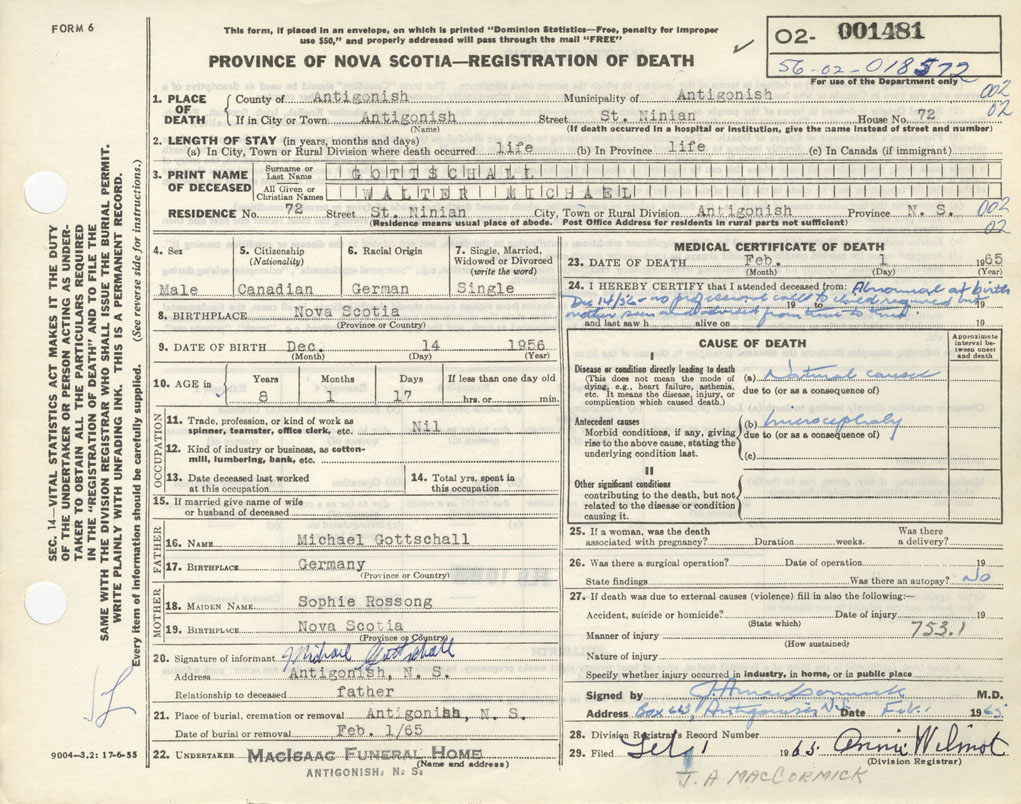 FORM 6
This form, if placed in an envelope, on which is printed "Dominion Statistics—Free, penalty for improper
use $50," and properly addressed will pass through the mail "FREE"
PROVINCE OF NOVA SCOTIA—REGISTRATION OF DEATH
02- 001481
56-02-018572
For use of the Department only
SEC. 14—VITAL STATISTICS ACT MAKES IT THE DUTY
OF THE UNDERTAKER OR PERSON ACTING AS UNDER-
TAKER TO OBTAIN ALL THE PARTICULARS REQUIRED
IN THE "REGISTRATION OF DEATH" AND TO FILE THE
SAME WITH THE DIVISION REGISTRAR WHO SHALL ISSUE THE BURIAL PERMIT.
WRITE PLAINLY WITH UNFADING INK. THIS IS A PERMANENT RECORD.
Every item of information should be carefully supplied. (See reverse side for instructions.)
1. PLACE OF DEATH County of Antigonish Municipality of Antigonish 002
If in City or Town Antigonish Street St. Ninian House No. 72 02
(Name) (If death occurred in a hospital or institution, give the name instead of street and number)
2. LENGTH OF STAY (in years, months and days)
(a) In City, Town or Rural Division where death occurred life (b) In Province life (c) In Canada (if immigrant)
3. PRINT NAME OF DECEASED Surname or Last Name GOTTSCHALL
All Given or Christian Names WALTER MICHAEL
RESIDENCE No. 72 Street St. Ninian City, Town or Rural Division Antigonish Province N. S. 002
(Residence means usual place of abode. Post Office Address for residents in rural parts not sufficient) 02
4. Sex 5. Citizenship (Nationality) 6. Racial Origin 7. Single, Married, Widowed or Divorced (write the word)
Male Canadian German Single
8. BIRTHPLACE Nova Scotia
(Province or Country)
9. DATE OF BIRTH Dec. 14 1956
(Month) (Day) (Year)
10. AGE in Years Months Days If less than one day old
8 1 17 hrs. or min.
OCCUPATION
11. Trade, profession, or kind of work as
spinner, teamster, office clerk, etc. Nil
12. Kind of industry or business, as cotton-
mill, lumbering, bank, etc.
13. Date deceased last worked
at this occupation
14. Total yrs. spent in
this occupation
15. If married give name of wife
or husband of deceased
FATHER
16. NAME Michael Gottschall
17. BIRTHPLACE Germany
(Province or Country)
MOTHER
18. MAIDEN NAME Sophie Rossong
19. BIRTHPLACE Nova Scotia
(Province or Country)
20. Signature of informant Michael Gottschall
Address Antigonish, N. S.
Relationship to deceased father
21. Place of burial, cremation or removal Antigonish, N. S.
Date of burial or removal Feb. 1/65
22. UNDERTAKER MACISAAC FUNERAL HOME
(Name and address)
ANTIGONISH, N. S.
9004—3.2: 17-6-55
MEDICAL CERTIFICATE OF DEATH
23. DATE OF DEATH Feb. 1 1965
(Month) (Day) (Year)
24. I HEREBY CERTIFY that I attended deceased from: Abnormal at birth
Dec 14/56 - no professional call to child required but 19 to 19
mother seen and advised from time to time.
and last saw h alive on 19
CAUSE OF DEATH
Approximate interval between onset and death
I
Disease or condition directly leading to death
(This does not mean the mode of dying, e.g., heart failure, asthenia, etc. It means the disease, injury, or complication which caused death.)
(a) Natural causes
due to (or as a consequence of)
Antecedent causes
Morbid conditions, if any, giving rise to the above cause, stating the underlying condition last.
(b) microcephaly
due to (or as a consequence of)
(c)
II
Other significant conditions
contributing to the death, but not related to the disease or condition causing it.
25. If a woman, was the death associated with pregnancy? Duration weeks. Was there a delivery?
26. Was there a surgical operation? Date of operation 19
State findings Was there an autopsy? No
27. If death was due to external causes (violence) fill in also the following:—
Accident, suicide or homicide? Date of injury 19
(State which) 753.1
Manner of injury
(How sustained)
Nature of injury
Specify whether injury occurred in industry, in home, or in public place
Signed by J A MacCormick M.D.
Address Box 663, Antigonish NS Date Feb. 1 1965
28. Division Registrar's Record Number
29. Filed Feb 1 1965 Annie Wilmot
(Division Registrar)
J. A MACCORMICK